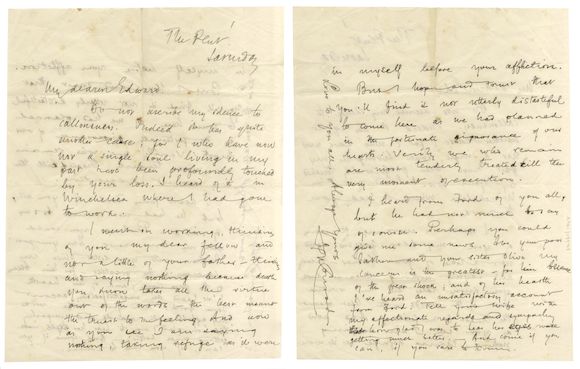 The Pent
Saturday
My dearest Edward
Do not ascribe my silence to
callousness. Indeed it has quite
another cause for I who have now
not a single soul living in my
past have been profoundly touched
by your loss. I heard of it in
Winchelsea where I had gone
to work.
I went on working, thinking
of you my dear fellow and
not a little of your father – thinking
and saying nothing because death
you know takes all the virtue
out of the words – the best meant
the truest to the feeling. And now
as you see I am saying
nothing, taking refuge as it were
in myself before your affliction.
But I hope and trust that
you'll find it not utterly distasteful
to come here as we had planned
in the fortunate ignorance of our
hearts. Verily we who remain
are most tenderly treated till the
very moment of execution.
I heard from Ford of you all,
but he had not much to say
of course. Perhaps you could
give me some news. For your poor
father and your sister Olive my
concern is the greatest – for him because
of the great shock; and of his health
I've heard an unsatisfactory account
from Ford. Tell your wife with
my affectionate regards and sympathy
how glad I was to hear her eyes were
getting much better. And come if you
can, if you care to come.
to you all. Always Yours